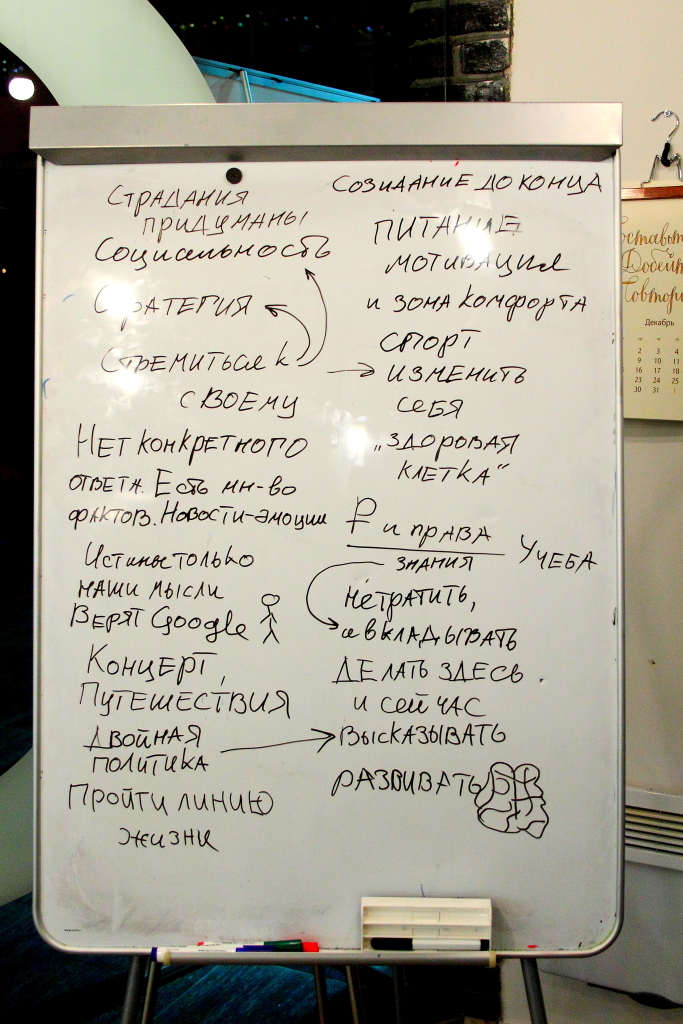 СТРАДАНИЯ
ПРИДУМАНЫ
СОЦИАЛЬНОСТЬ
СТРАТЕГИЯ
СТРЕМИТЬСЯ К
СВОЕМУ
НЕТ КОНКРЕТНОГО
ОТВЕТА. ЕСТЬ МН-ВО
ФАКТОВ. НОВОСТИ-ЭМОЦИИ
ИСТИНЫ ТОЛЬКО
НАШИ МЫСЛИ
ВЕРЯТ Google
КОНЦЕРТ,
ПУТЕШЕСТВИЯ
ДВОЙНАЯ
ПОЛИТИКА
ПРОЙТИ ЛИНИЮ
ЖИЗНИ
СОЗИДАНИЕ ДО КОНЦА
ПИТАНИЕ
МОТИВАЦИЯ
И ЗОНА КОМФОРТА
СПОРТ
ИЗМЕНИТЬ
СЕБЯ
„ЗДОРОВАЯ
КЛЕТКА“
₽ И ПРАВА
ЗНАНИЯ
УЧЕБА
НЕ ТРАТИТЬ,
А ВКЛАДЫВАТЬ
ДЕЛАТЬ ЗДЕСЬ
И СЕЙЧАС
ВЫСКАЗЫВАТЬ
РАЗВИВАТЬ
Декабрь
2 3 4
9 10 11
16 17 18
23 24 25
30 31 1